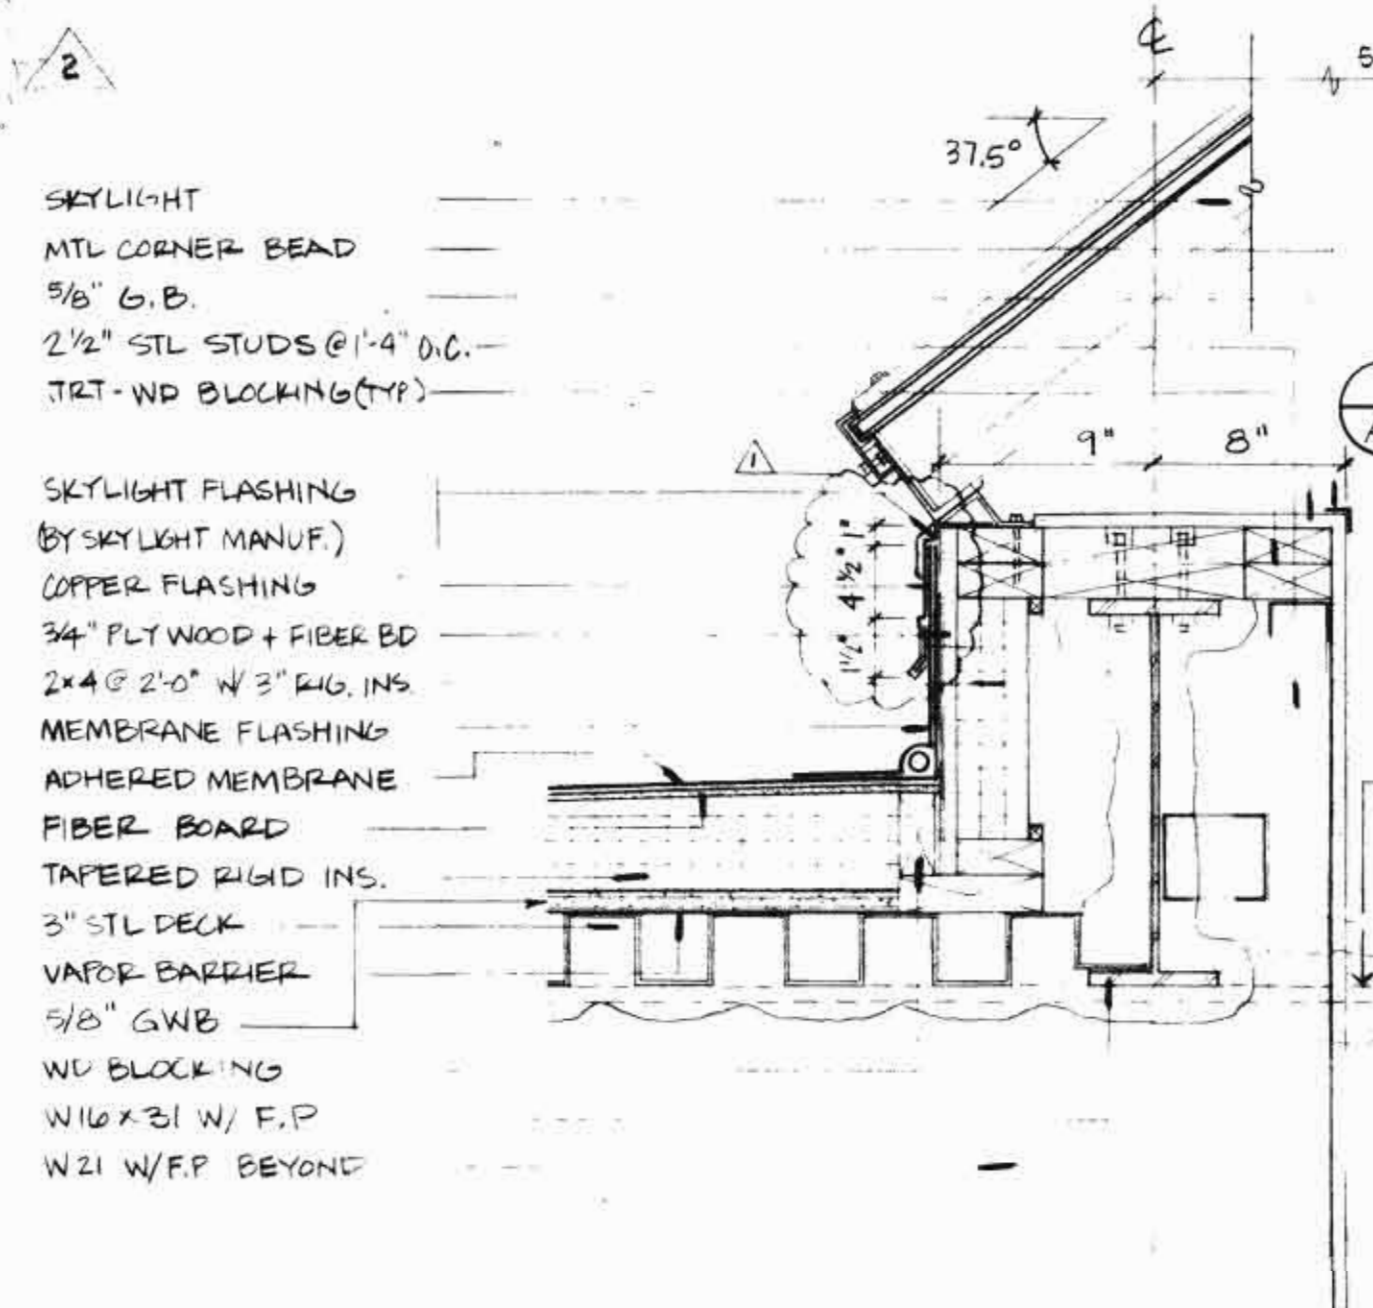 2
℄
5
37.5°
SKYLIGHT
MTL CORNER BEAD
5/8" G.B.
2 1/2" STL STUDS @ 1'-4" O.C.
TRT-WD BLOCKING (TYP)
9"
8"
1
SKYLIGHT FLASHING
(BY SKYLIGHT MANUF.)
COPPER FLASHING
3/4" PLYWOOD + FIBER BD
2x4 @ 2'-0" W/ 3" RIG. INS.
1"
4 1/2"
1 1/2"
MEMBRANE FLASHING
ADHERED MEMBRANE
FIBER BOARD
TAPERED RIGID INS.
3" STL DECK
VAPOR BARRIER
5/8" GWB
WD BLOCKING
W16x31 W/ F.P
W21 W/F.P BEYOND